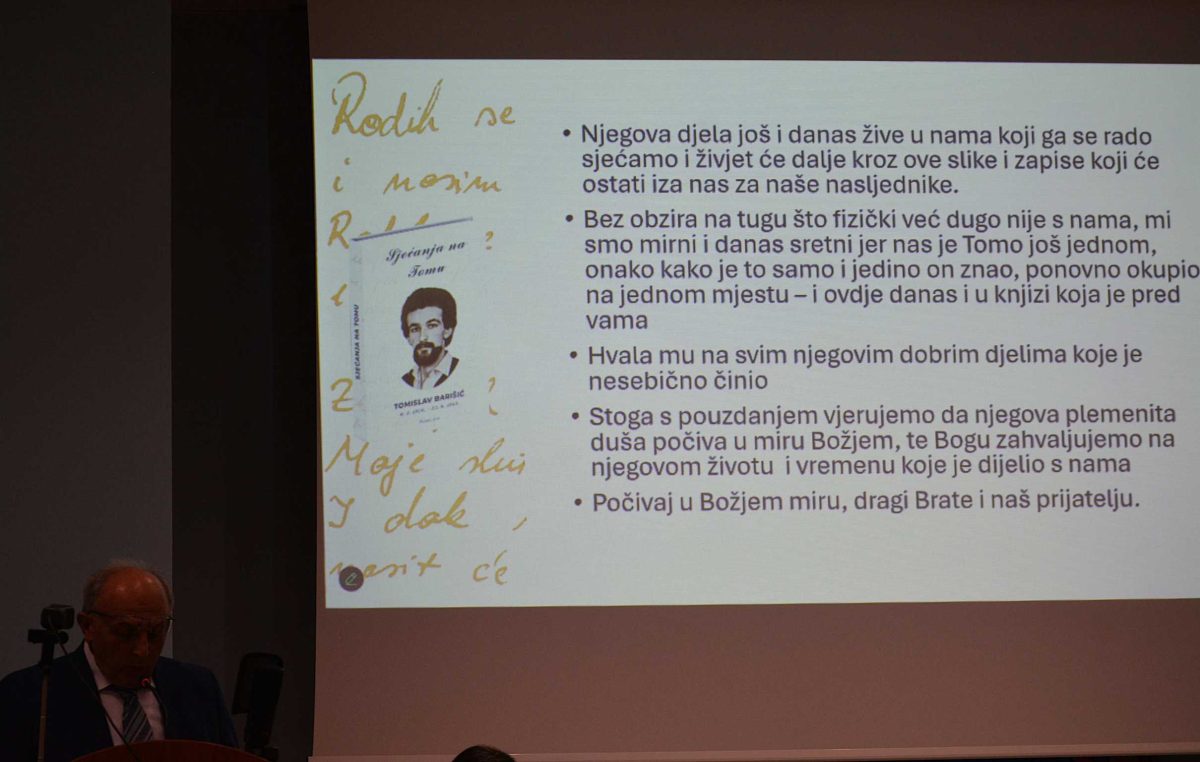 Rodih se
i nosim
?
Sjećanja na
Tomu
SJEĆANJA NA TOMU
TOMISLAV BARIŠIĆ
Z ?
Moje
I dok ,
nosit će
• Njegova djela još i danas žive u nama koji ga se rado
sjećamo i živjet će dalje kroz ove slike i zapise koji će
ostati iza nas za naše nasljednike.
• Bez obzira na tugu što fizički već dugo nije s nama, mi
smo mirni i danas sretni jer nas je Tomo još jednom,
onako kako je to samo i jedino on znao, ponovno okupio
na jednom mjestu – i ovdje danas i u knjizi koja je pred
vama
• Hvala mu na svim njegovim dobrim djelima koje je
nesebično činio
• Stoga s pouzdanjem vjerujemo da njegova plemenita
duša počiva u miru Božjem, te Bogu zahvaljujemo na
njegovom životu i vremenu koje je dijelio s nama
• Počivaj u Božjem miru, dragi Brate i naš prijatelju.